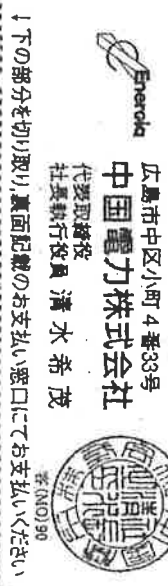 Enerola
広島市中区小町4番33号
中国電力株式会社
代表取締役
社長執行役員 清水希茂
↓下の部分を切り取り,裏面記載のお支払い窓口にてお支払いください